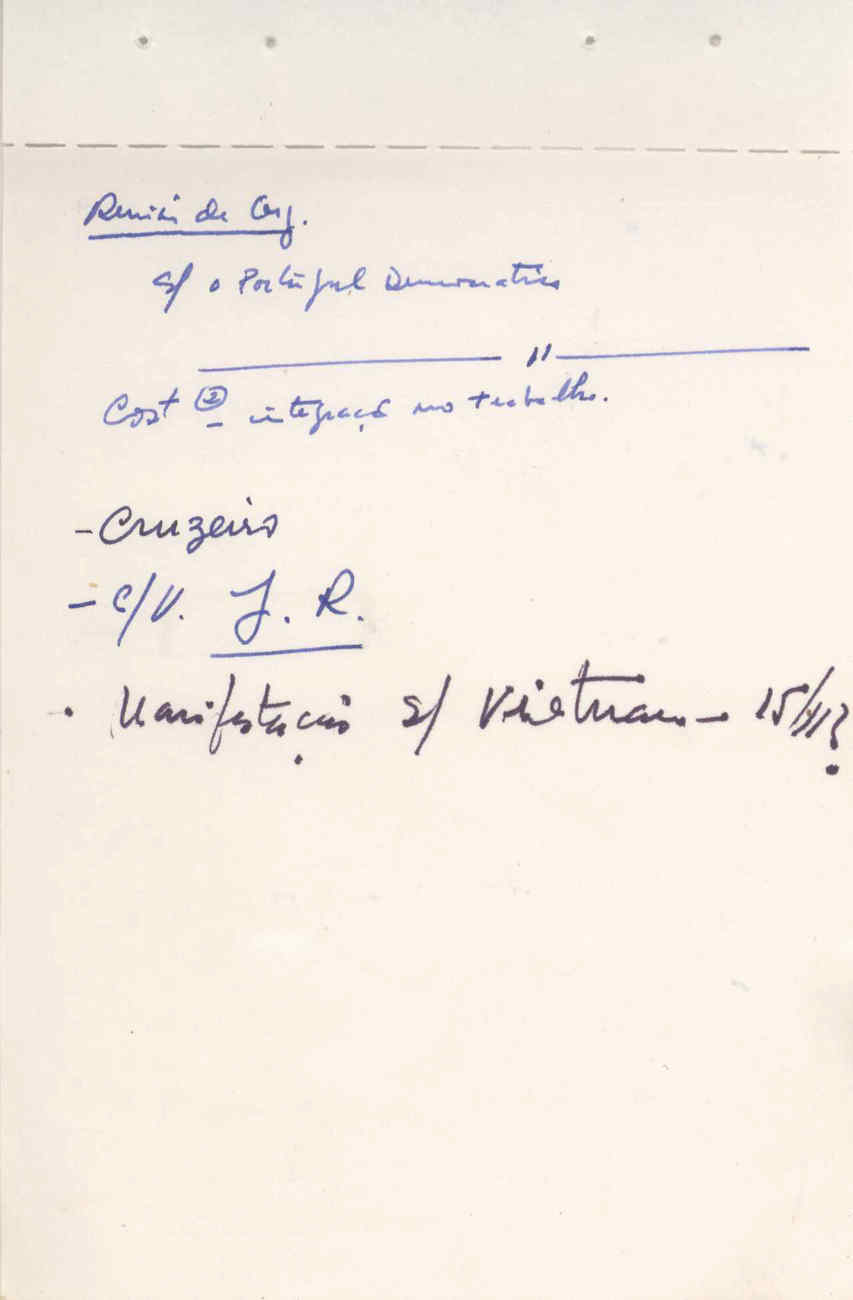 Reunião de Org.
s/ o Portugal Democratico
"
Cost ② - integração no trabalho.
- Cruzeiro
- c/V. J. R.
• Manifestação s/ Vietnam - 15/